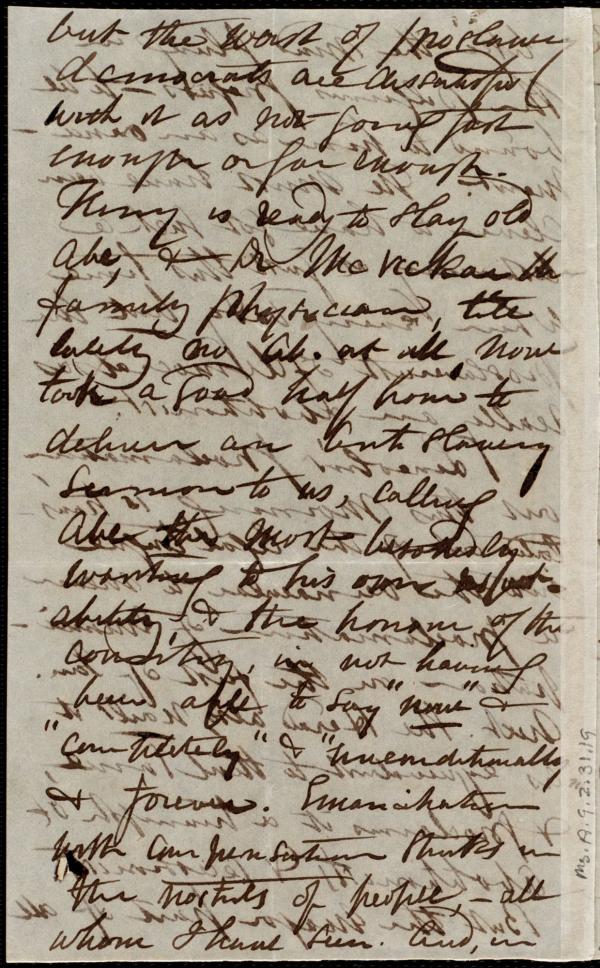 but the worst of proslavery
democrats are dissatisfied
with it as not going fast
enough or far enough.
Henry is ready to slay old
Abe, & Dr McVickar the
family physician, till
lately no Ab. at all now
took a good half hour to
deliver an Anti Slavery
Sermon to us, calling
Abe the most besottedly
wanting to his own respect-
ability, & the honour of the
country, in not having
been able to say "now" &
"completely" & "unconditionally
& forever. Emancipation
with compensation stinks in
the nostrils of people, – all
whom I have seen. And, in
Ms.A.9.2.31.19